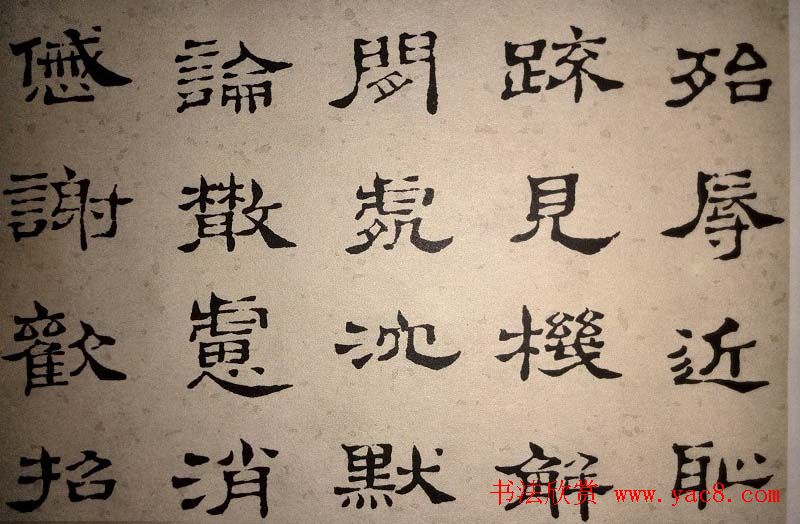 殆辱近耻
疏見機解
閒處沈默
論散慮消
慼謝歡招
书法欣赏 www.yac8.com